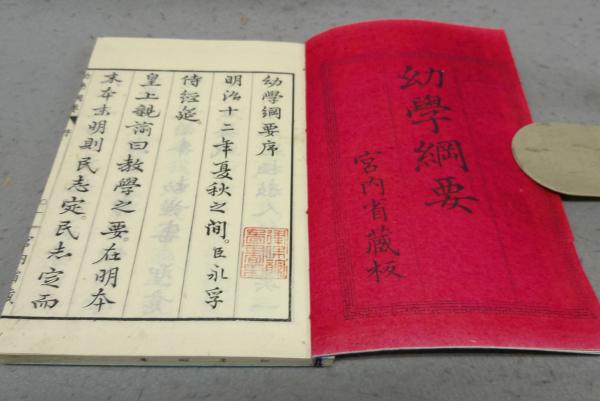 幼學綱要
宮内省蔵板
幼學綱要序
明治十二年夏秋之間。臣永孚
侍經筵。
皇上親諭曰教學之要。在明本
末本末明則民志定。民志定而